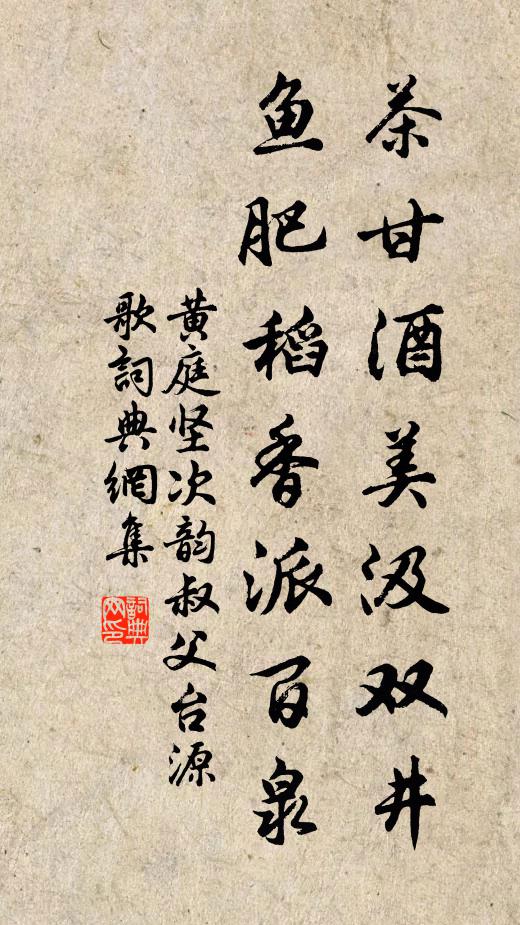 茶甘酒美汲双井
鱼肥稻香派百泉
黄庭坚次韵叔父台源
歌詞典網集
詞典网印